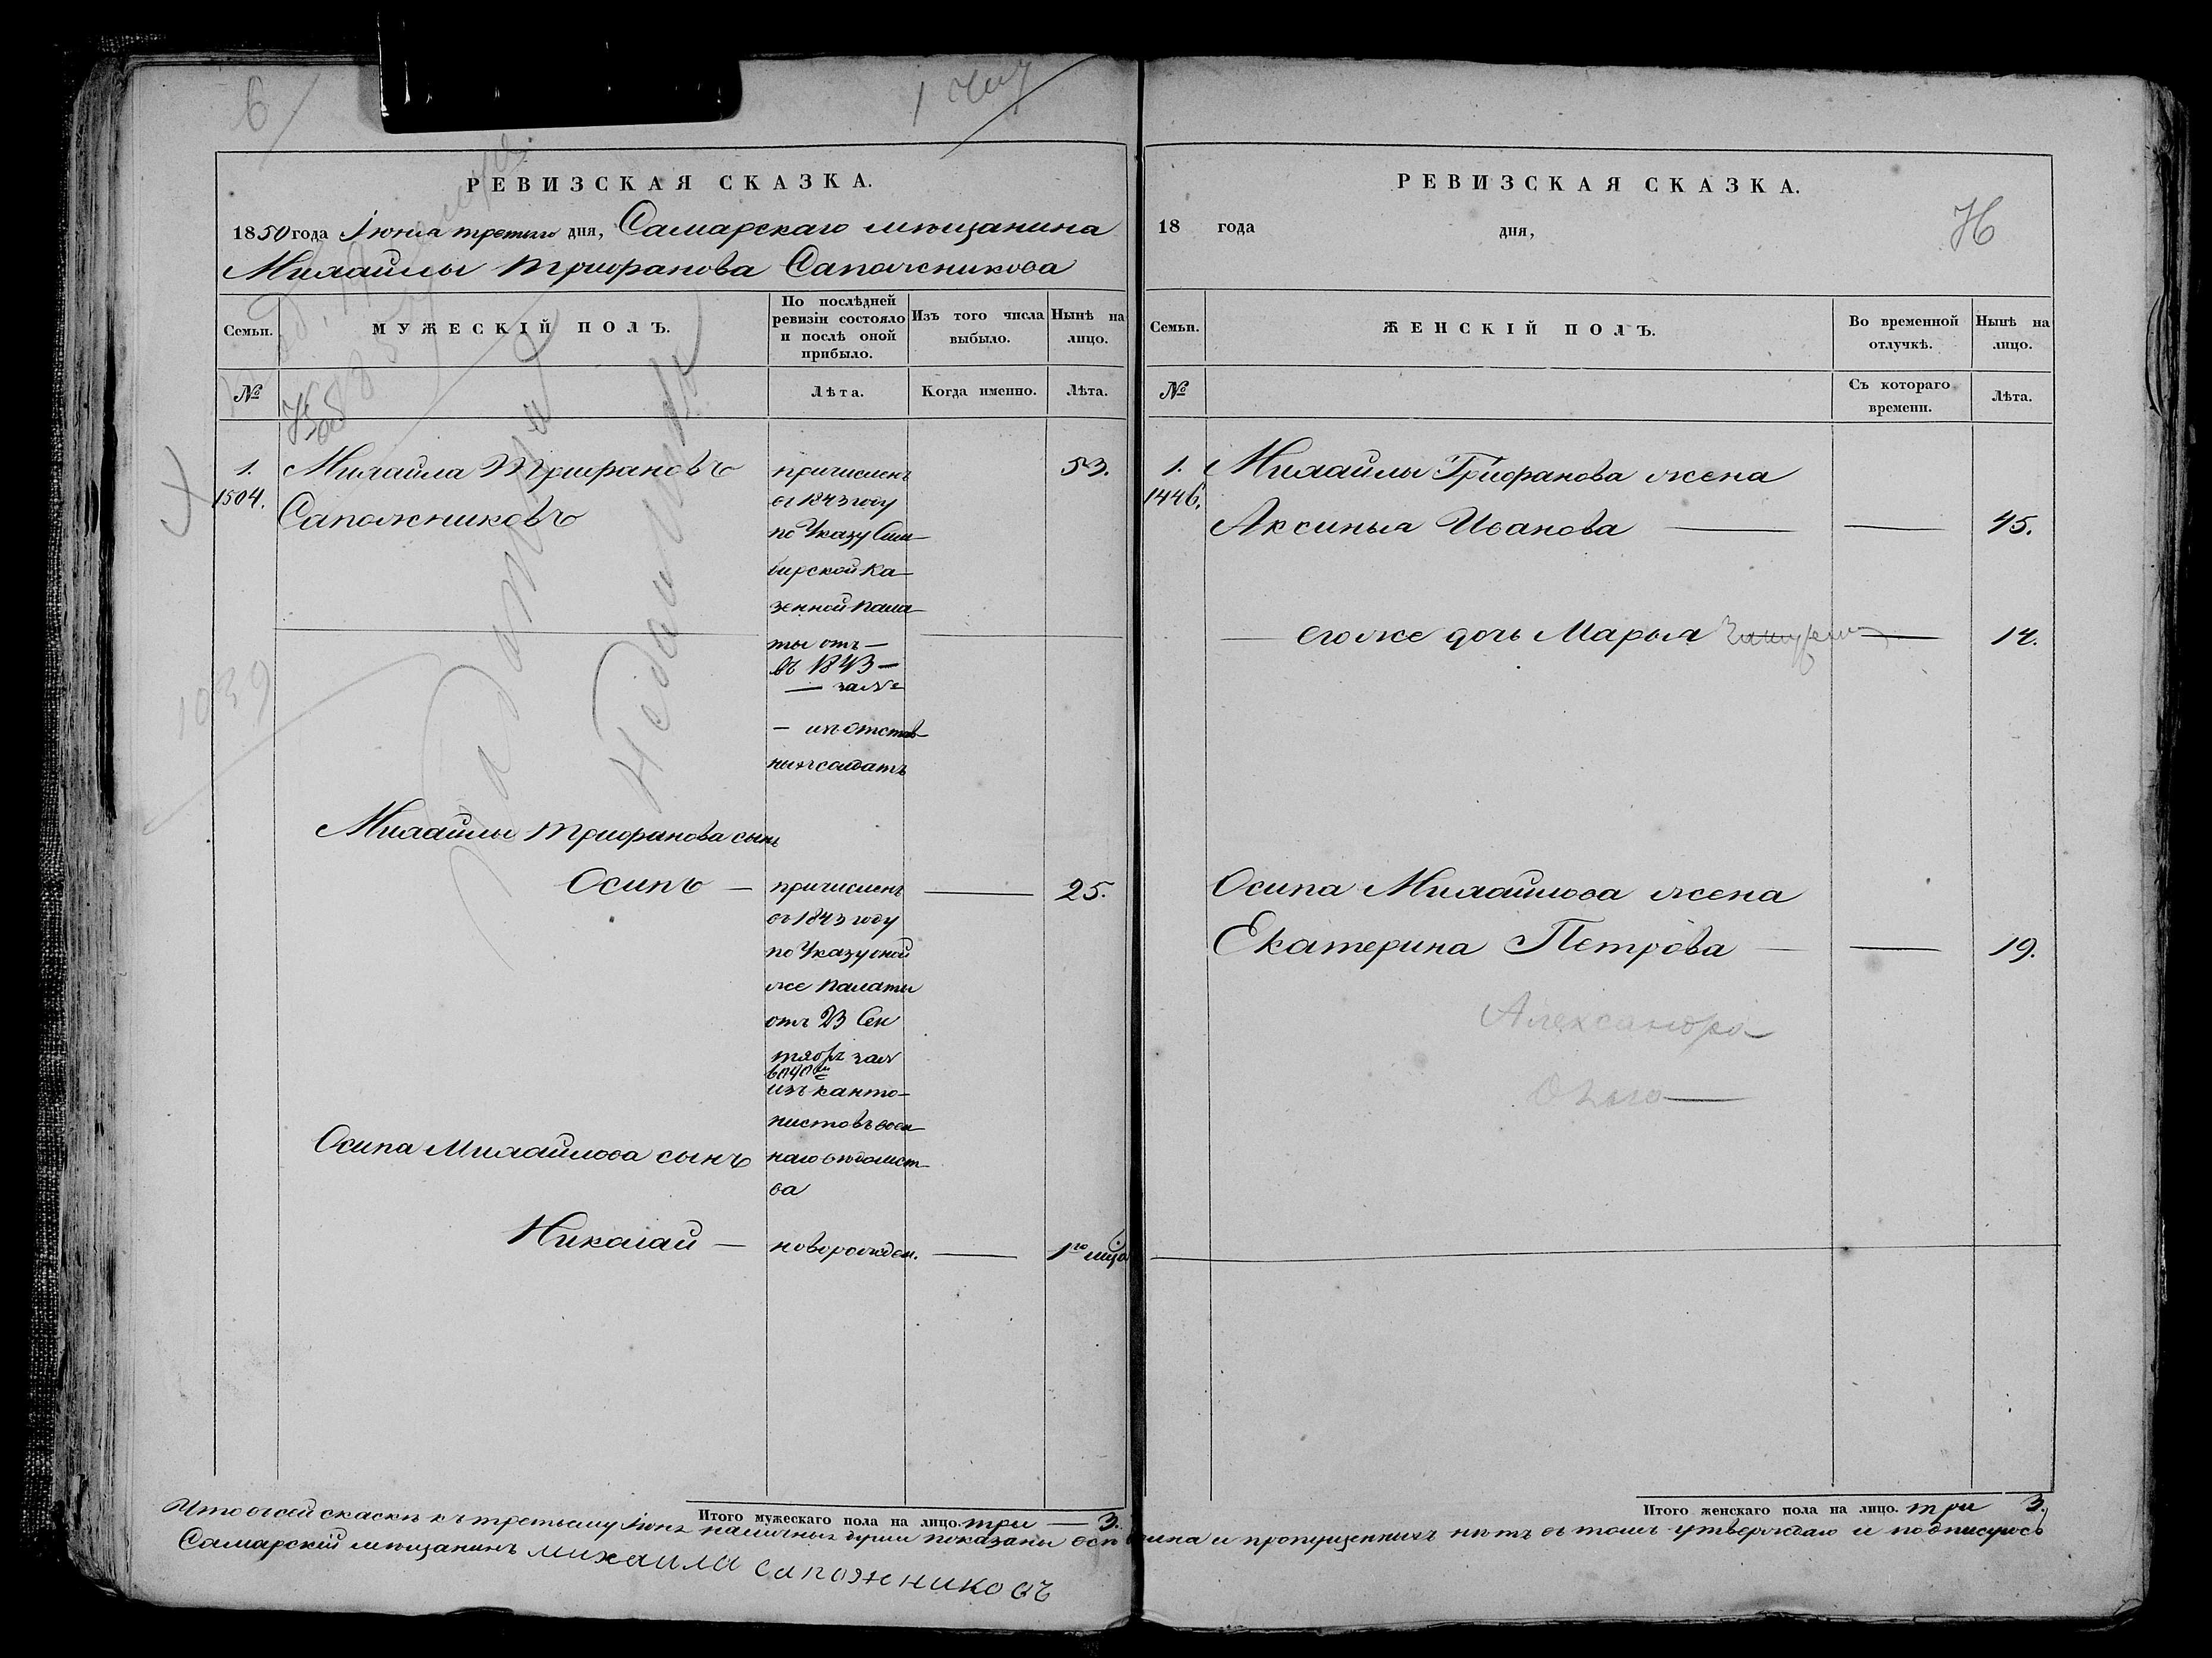 6
РЕВИЗСКАЯ СКАЗКА.
1850 года Іюня третьяго дня, Самарскаго мѣщанина
Михайлы Трифанова Сапожникова
Семьи.
МУЖЕСКІЙ ПОЛЪ.
По послѣдней
ревизіи состояло
и послѣ оной
прибыло.
Изъ того числа
выбыло.
Нынѣ на
лицо.
№
Лѣта.
Когда именно.
Лѣта.
1.
1504.
Михайла Трифановъ
Сапожниковъ
причисленъ
въ 1843 году
по Указу Сим-
бирской Ка-
зенной пала-
ты отъ —
въ 1843 —
— за №
— изъ отстав-
ныхъ солдатъ
53.
1039
Михайлы Трифанова сынъ
Осипъ —
причисленъ
въ 1843 году
по Указу оной
же палаты
отъ 23 Сен
тября за №
изъ канто-
нистовъ воен-
наго вѣдомст-
ва
25.
Осипа Михайлова сынъ
Николай —
новорожден.
1го
Итого мужескаго пола на лицо. три — 3.
РЕВИЗСКАЯ СКАЗКА.
18 года дня,
Н
Семьи.
ЖЕНСКІЙ ПОЛЪ.
Во временной
отлучкѣ.
Нынѣ на
лицо.
№
Съ котораго
времени.
Лѣта.
1.
1446.
Михайлы Трифанова жена
Аксинья Иванова — — 45.
его же дочь Марья — 14.
Осипа Михайлова жена
Екатерина Петрова — — 19.
Александра
Ольга
Итого женскаго пола на лицо. три 3.
Что въ сей сказкѣ къ третьему Іюня наличныя души показаны всѣ и пропущенныхъ нѣтъ въ томъ утверждаю и подписуюсь
Самарскій мѣщанинъ михаила сапожниковъ